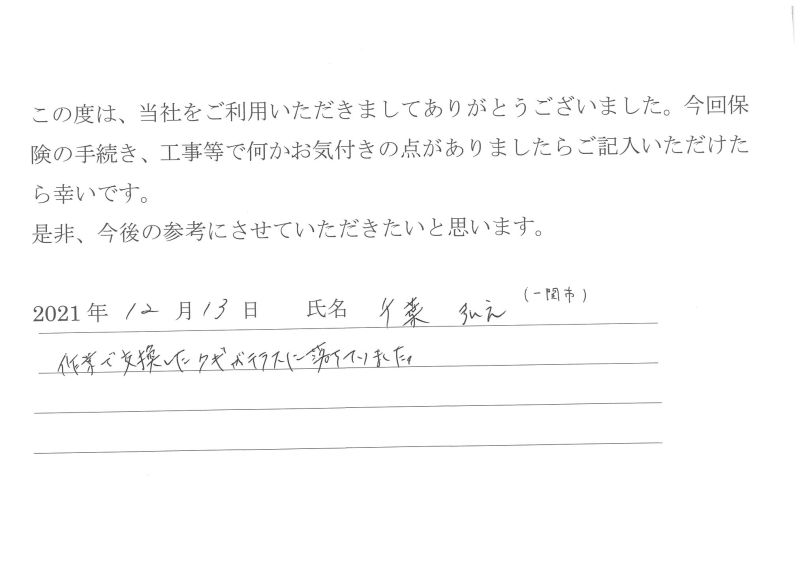 この度は、当社をご利用いただきましてありがとうございました。今回保
険の手続き、工事等で何かお気付きの点がありましたらご記入いただけた
ら幸いです。
是非、今後の参考にさせていただきたいと思います。
2021年 12月13日 氏名 千葉 弘之 (一関市)
作業で交換したクギがテラスに落ちていました。